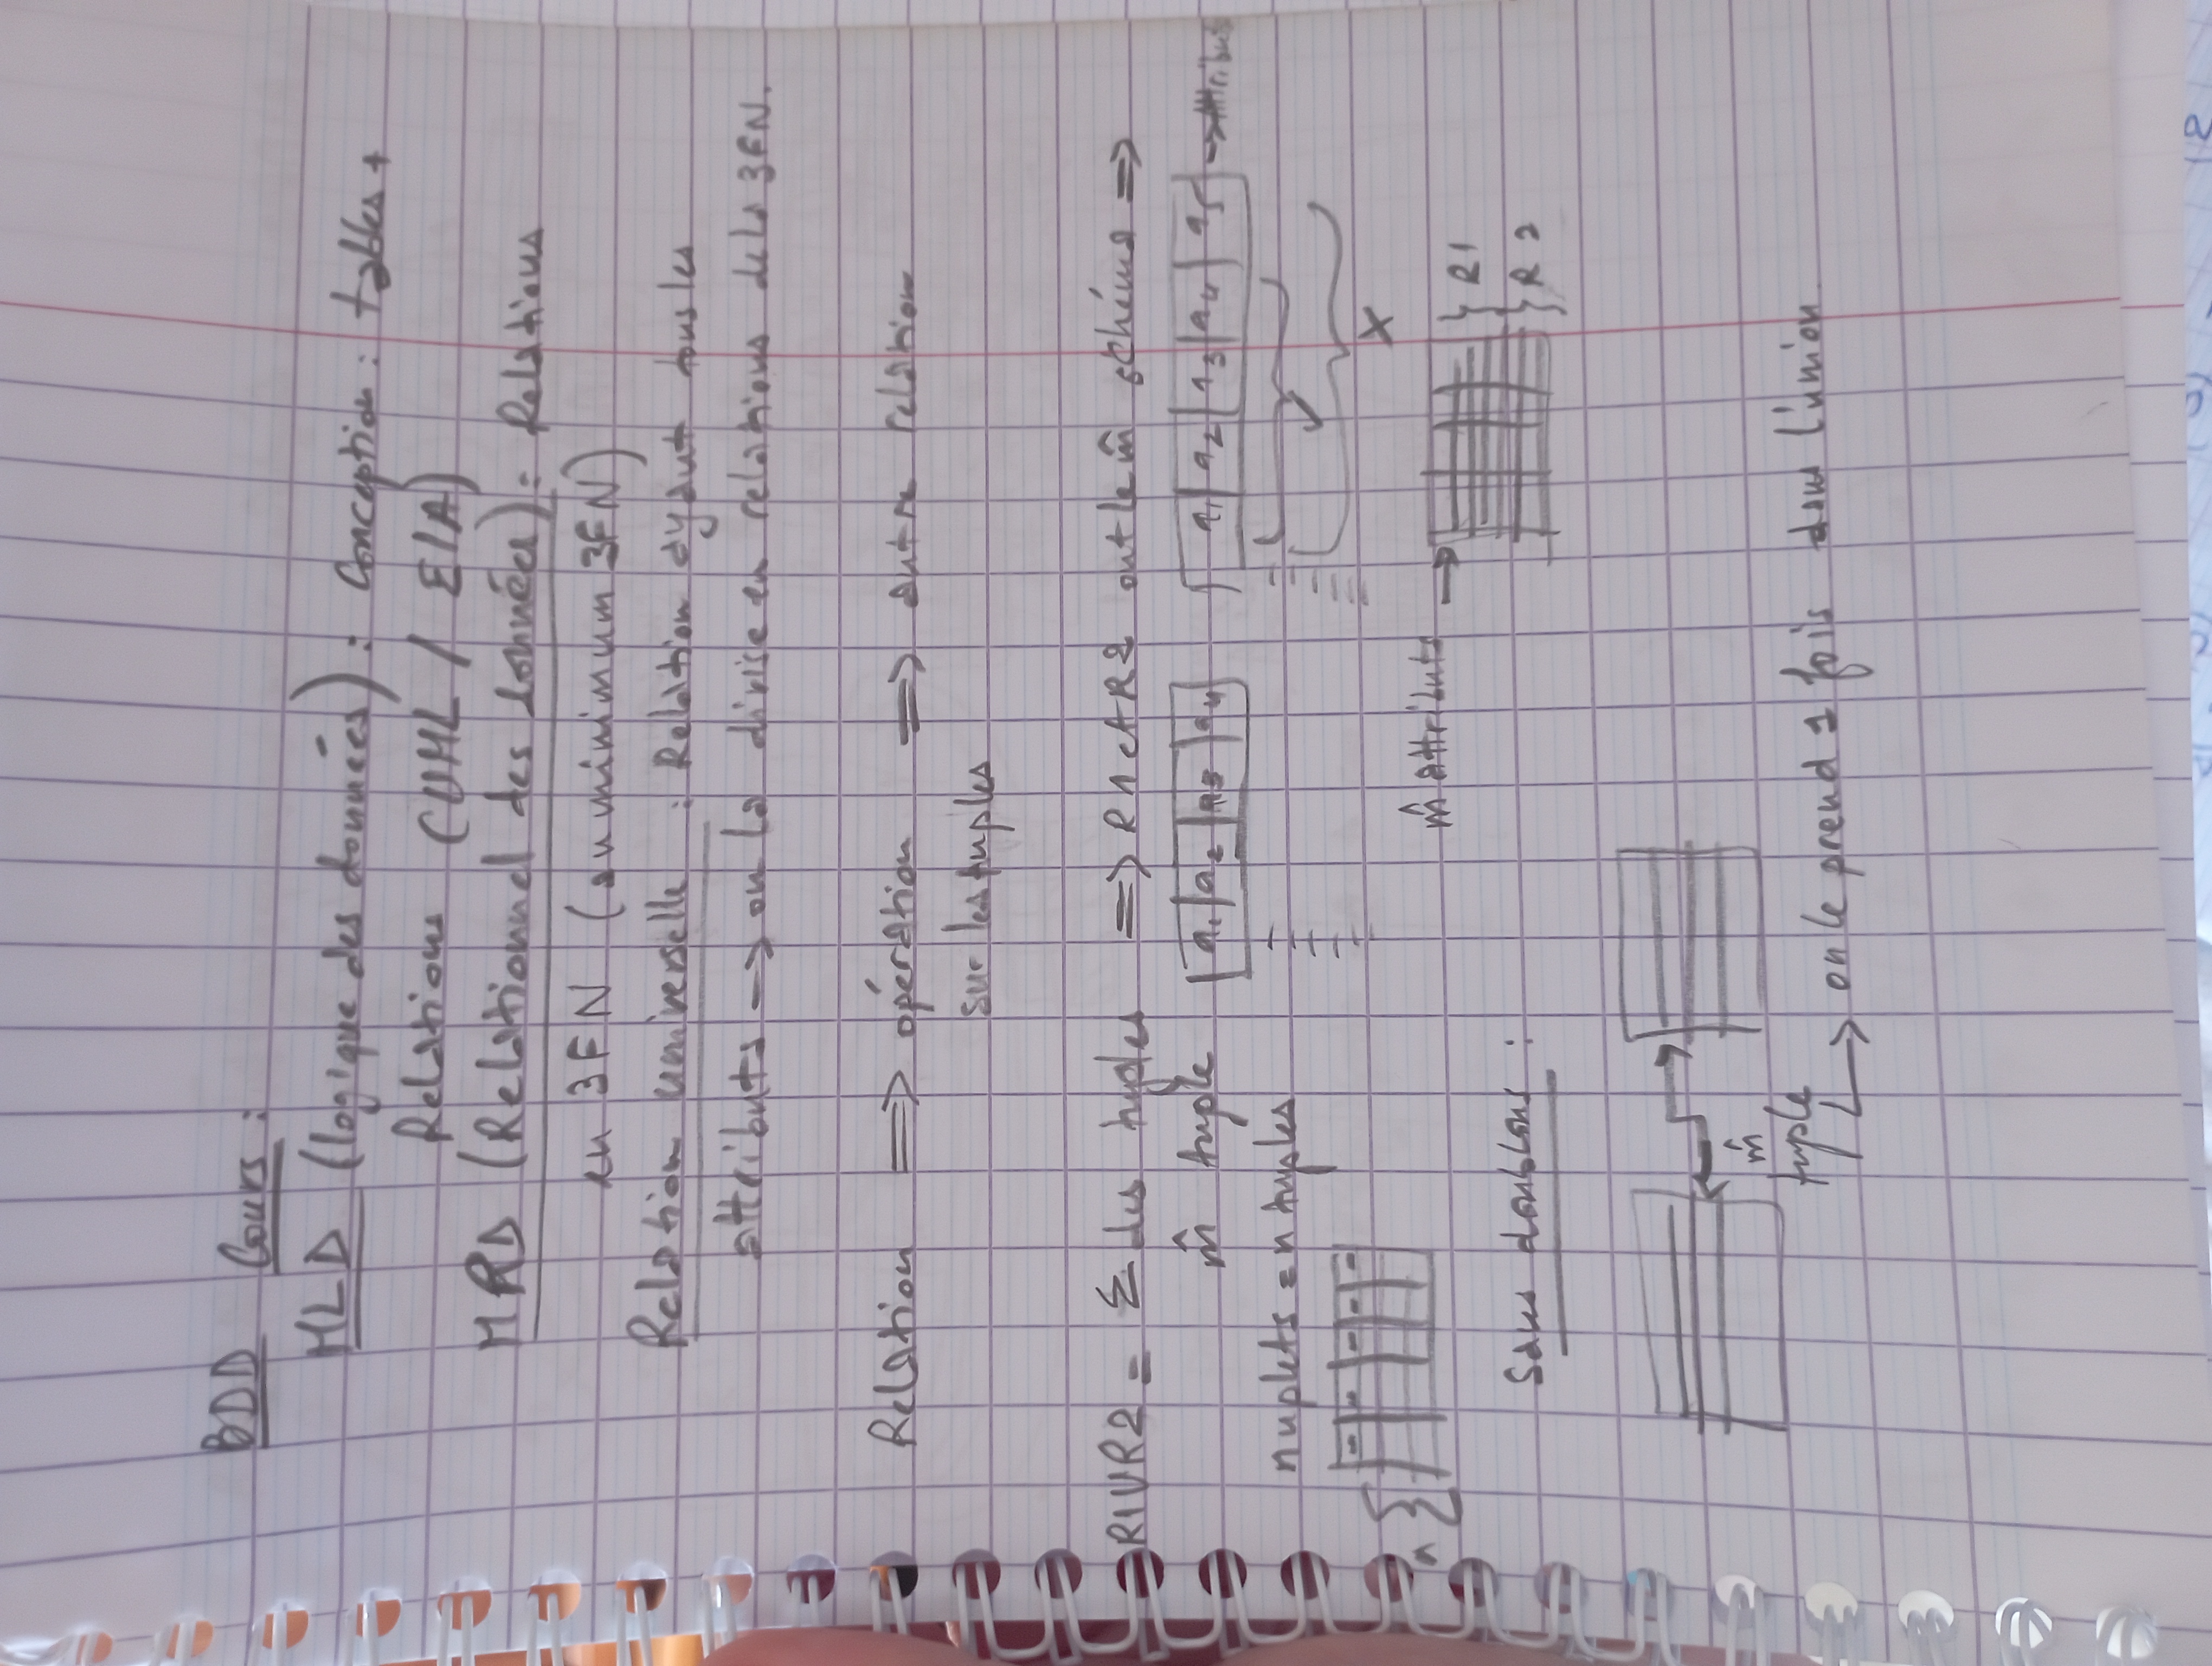 BDD Cours :
MLD (logique des données) : Conception : tables +
Relations (UML / E/A)
MRD (Relationnel des données) : Relations
en 3FN (au minimum 3FN)
Relation universelle : Relation ayant tous les
attributs → on la divise en relations de la 3FN.
Relation ⇒ opération ⇒ autre relation
sur les tuples
R1UR2 = Σ des tuples ⇒ R1 et R2 ont le m̂ schéma ⇒
m̂ tuple a1 a2 a3 a4 a1 a2 a3 a4 a5 → Attributs
nuplets = n tuples
n
X
m̂ attributs → R1
Sans doublons : R2
m̂
tuple
→ on le prend 1 fois dans l'union.